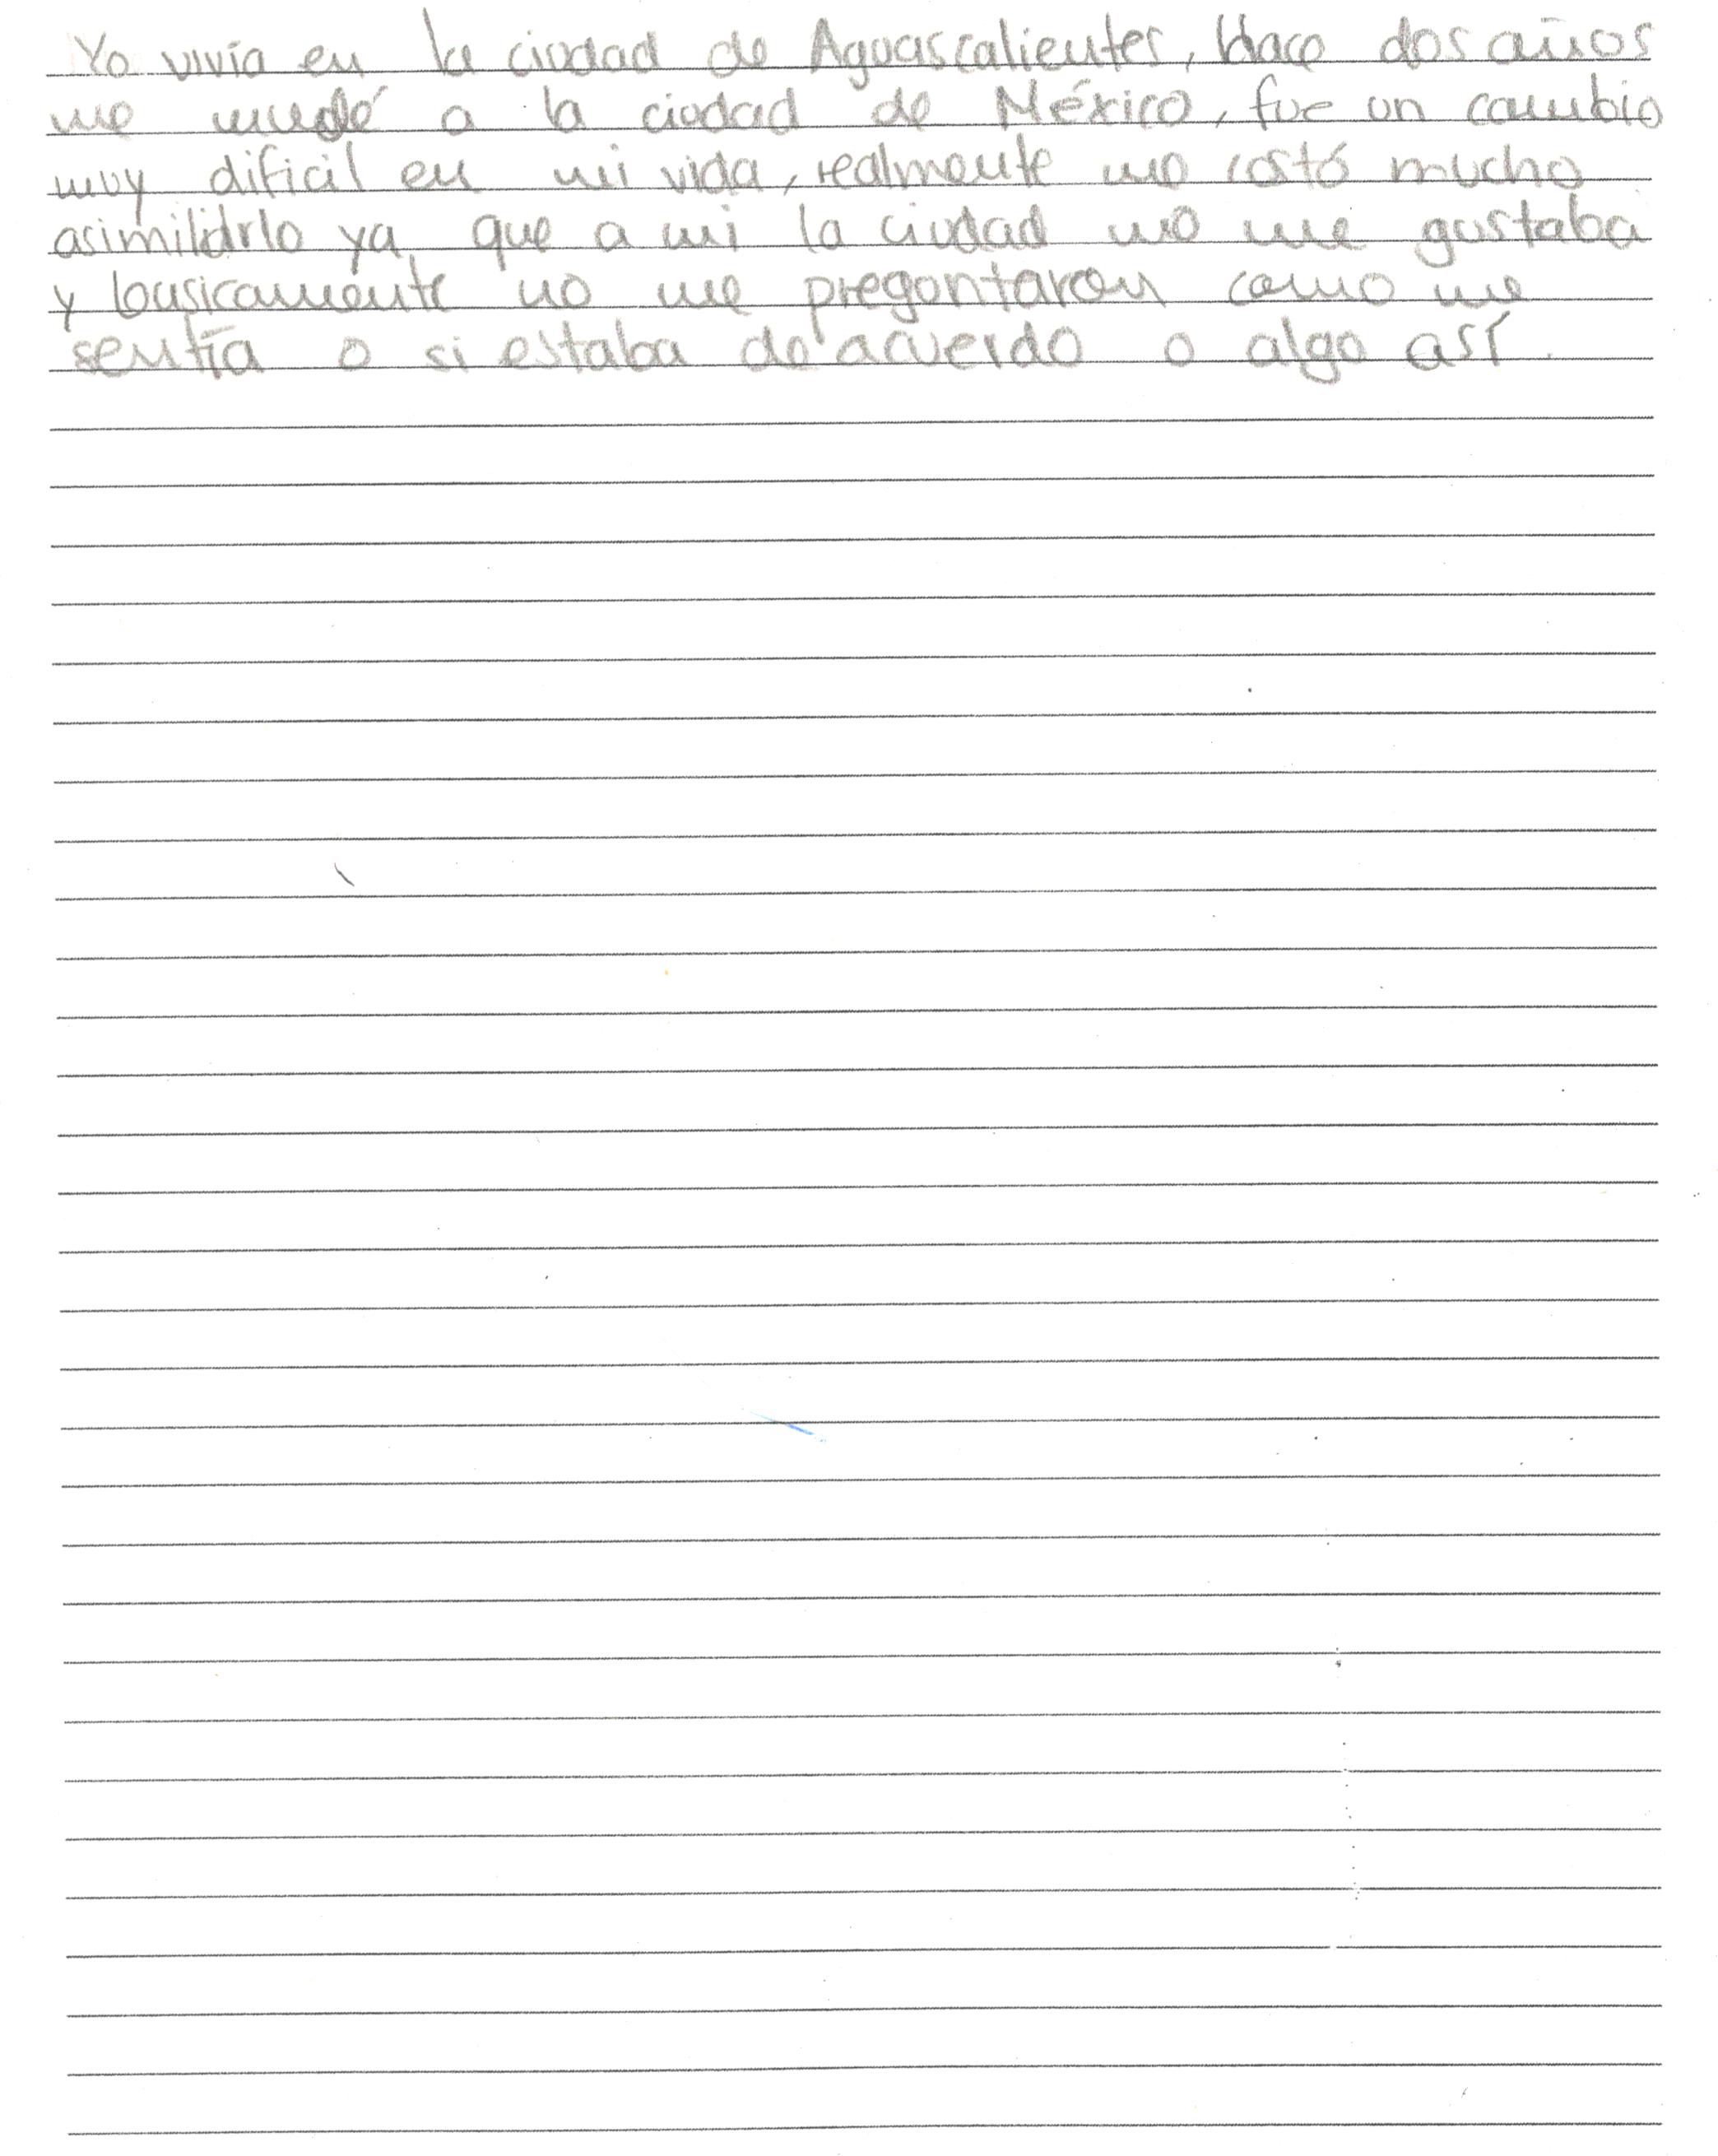 Yo vivía en la ciudad de Aguascalientes, Hace dos años
me mudé a la ciudad de México, fue un cambio
muy dificil en mi vida, realmente me costó mucho
asimilarlo ya que a mi la ciudad no me gustaba
y basicamente no me preguntaron como me
sentía o si estaba de acuerdo o algo así.